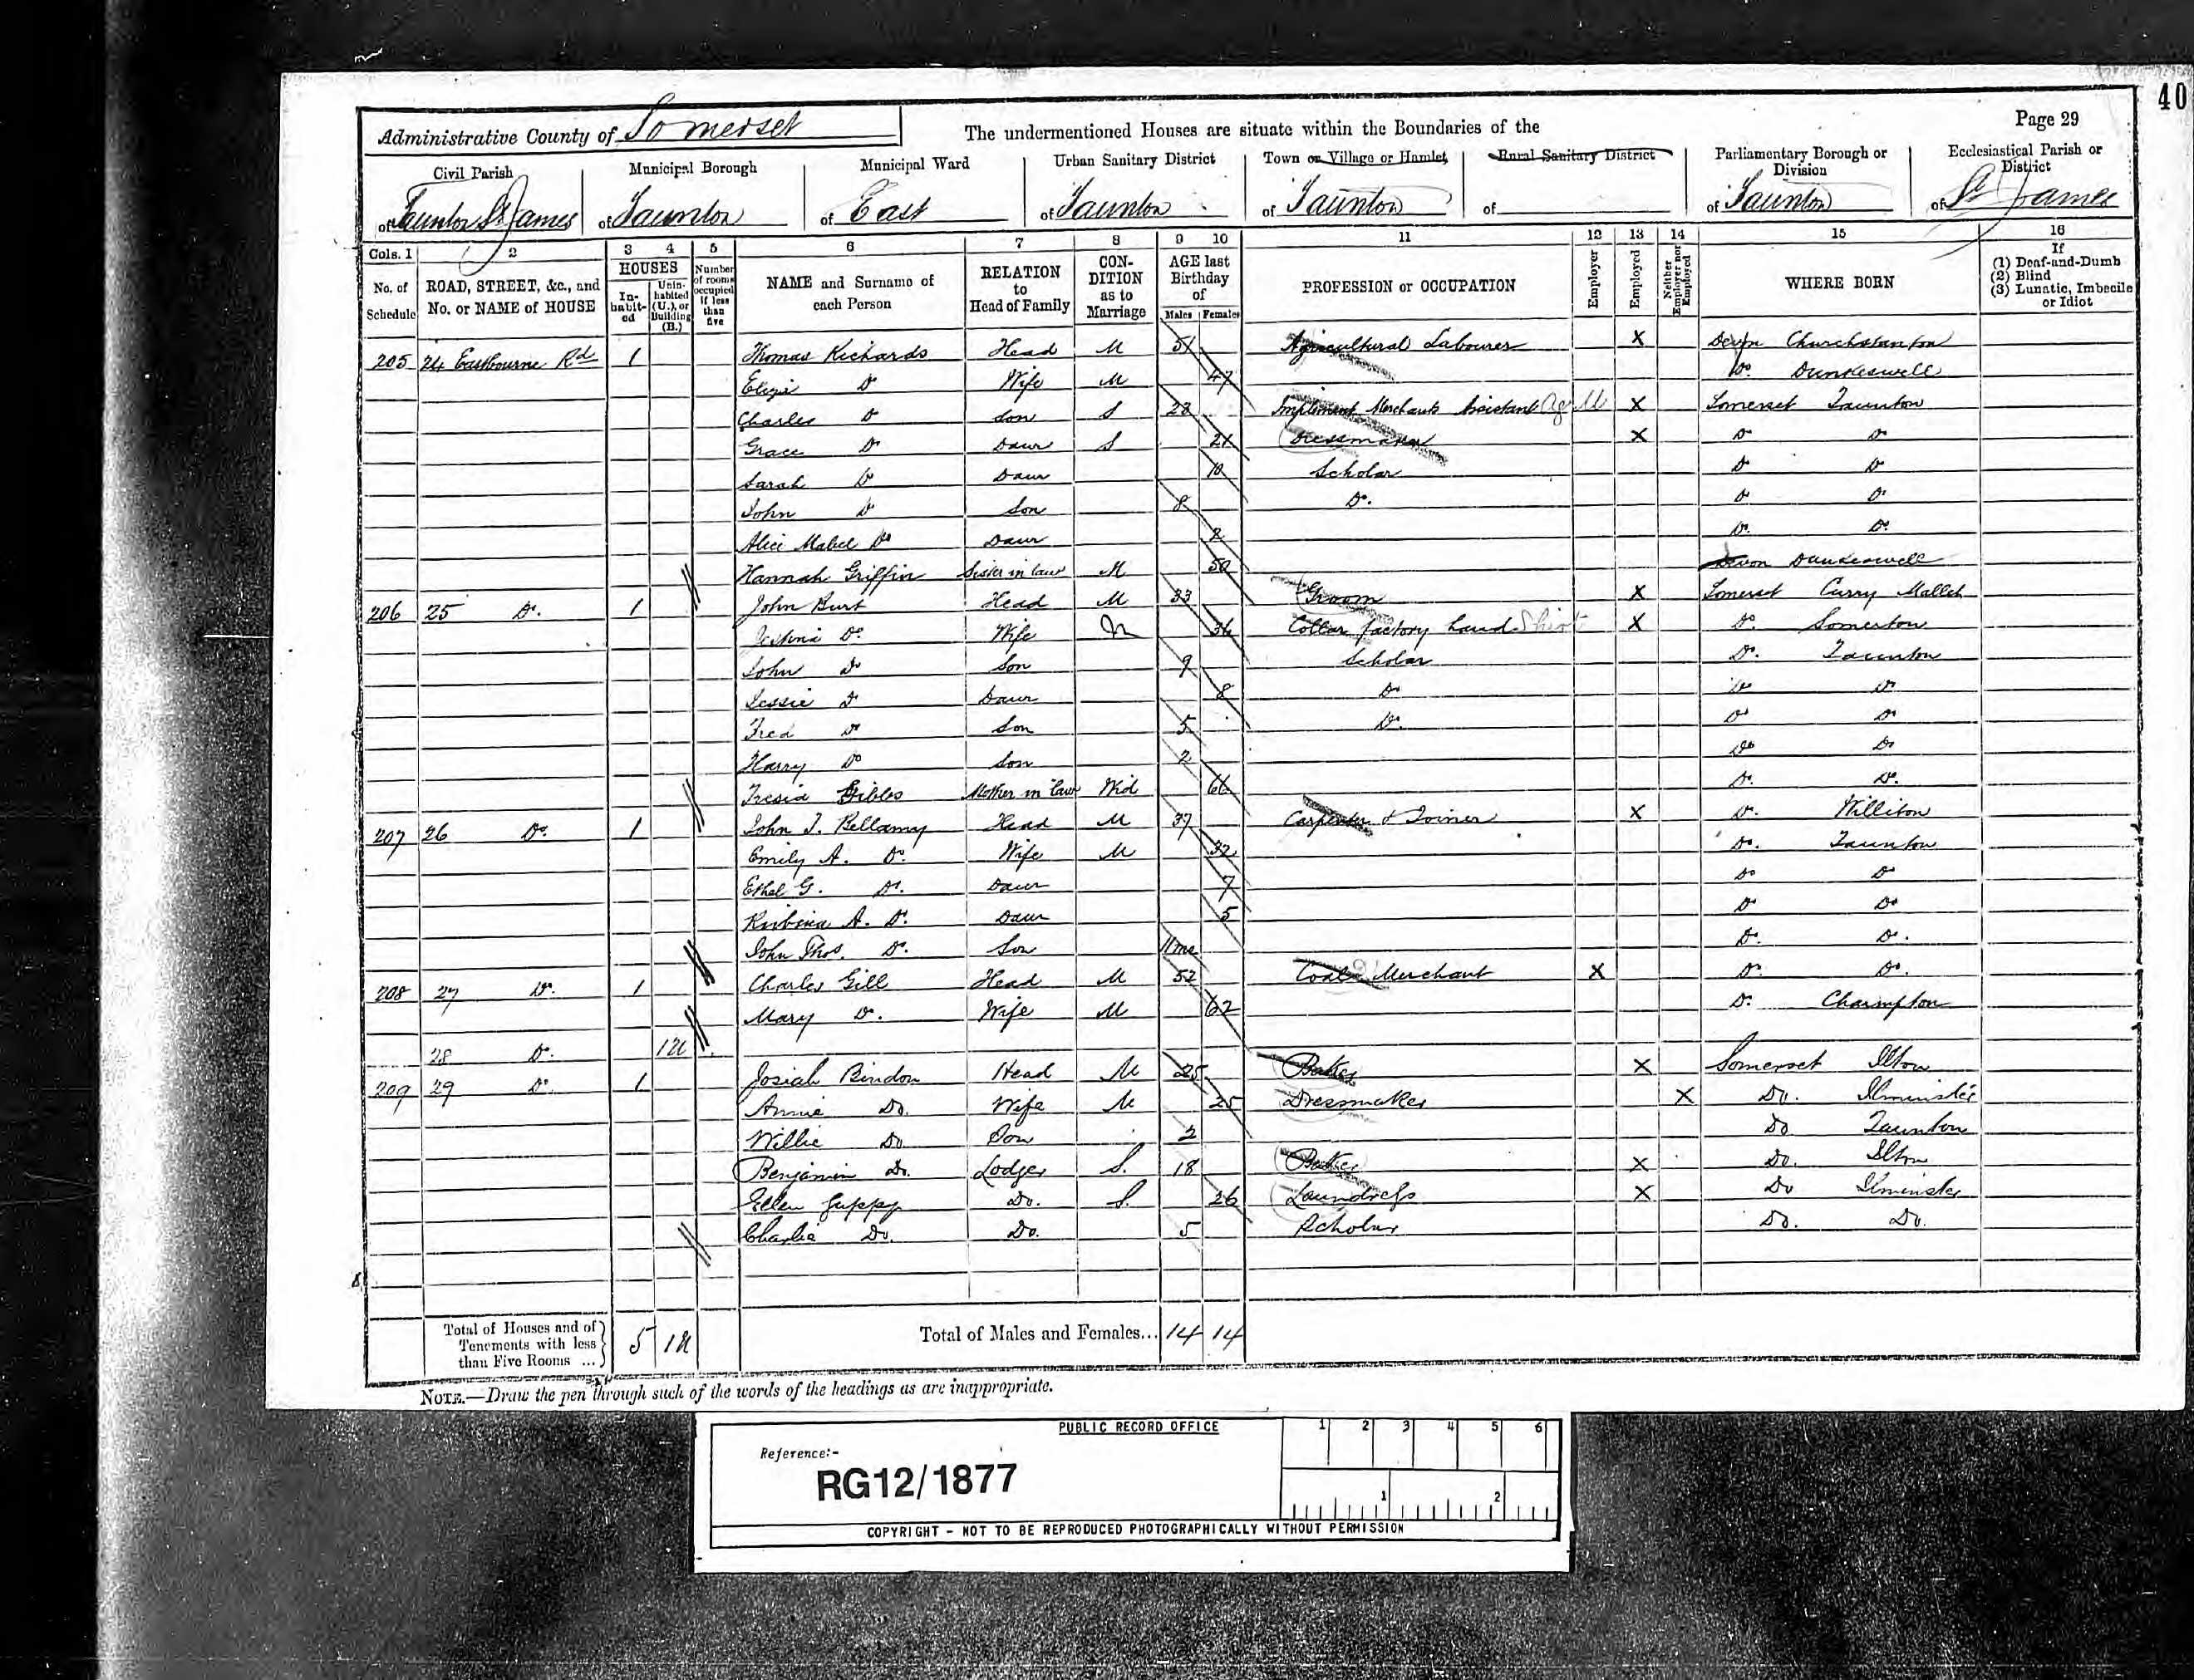 40
Page 29
Administrative County of Somerset
The undermentioned Houses are situate within the Boundaries of the
Civil Parish of Taunton St James
Municipal Borough of Taunton
Municipal Ward of East
Urban Sanitary District of Taunton
Town or Village or Hamlet of Taunton
Rural Sanitary District of
Parliamentary Borough or Division of Taunton
Ecclesiastical Parish or District of St James
Cols. 1 2 3 4 5 6 7 8 9 10 11 12 13 14 15 16
No. of Schedule
ROAD, STREET, &c., and No. or NAME of HOUSE
HOUSES
Inhabited
Uninhabited (U.), or Building (B.)
Number of rooms occupied if less than five
NAME and Surname of each Person
RELATION to Head of Family
CONDITION as to Marriage
AGE last Birthday of
Males Females
PROFESSION or OCCUPATION
Employer
Employed
Neither Employer nor Employed
WHERE BORN
If (1) Deaf-and-Dumb (2) Blind (3) Lunatic, Imbecile or Idiot
205 24 Eastbourne Rd 1 Thomas Richards Head M 51 Agricultural Labourer X Devon Churchstanton
Eliza Do Wife M 47 Do. Dunkeswell
Charles Do Son S 28 Implement Merchants Assistant Ag M X Somerset Taunton
Grace Do Daur S 21 Dressmaker X Do Do
Sarah Do Daur 10 Scholar Do Do
John Do Son 8 Do. Do Do
Alice Mabel Do Daur 2 Do. Do.
Hannah Griffin Sister in law M 50 Devon Dunkeswell
206 25 Do. 1 John Burt Head M 33 Groom X Somerset Curry Mallet
Do. Wife M 36 Collar factory hand Shirt X Do. Somerton
John Do Son 9 Scholar Do. Taunton
Jessie Do Daur 8 Do Do Do
Fred Do Son 5 Do. Do Do
Harry Do Son 2 Do Do
Gibbs Mother in law Wid 66 Do. Do.
207 26 Do. 1 John T. Bellamy Head M 37 Carpenter & Joiner X Do. Williton
Emily A. Do. Wife M 32 Do. Taunton
Ethel G. Do. Daur 7 Do Do
A. Do. Daur 5 Do Do
John Thos. Do. Son 11 mo Do. Do.
208 27 Do. 1 Charles Gill Head M 52 Coal Merchant X Do. Do.
Mary Do. Wife M 62 Do.
28 Do. 1U
209 29 Do. 1 Josiah Bindon Head M 25 Baker X Somerset Ilton
Annie Do. Wife M 25 Dressmaker X Do. Ilminster
Willie Do Son 2 Do Taunton
Benjamin Do. Lodger S. 18 Baker X Do. Ilton
Ellen Guppy Do. S. 26 Laundress X Do Ilminster
Charlie Do. Do. 5 Scholar Do. Do.
Total of Houses and of Tenements with less than Five Rooms ... 5 1U
Total of Males and Females... 14 14
NOTE.—Draw the pen through such of the words of the headings as are inappropriate.
PUBLIC RECORD OFFICE
1 2 3 4 5 6
Reference:-
RG12/1877
1 2
COPYRIGHT - NOT TO BE REPRODUCED PHOTOGRAPHICALLY WITHOUT PERMISSION